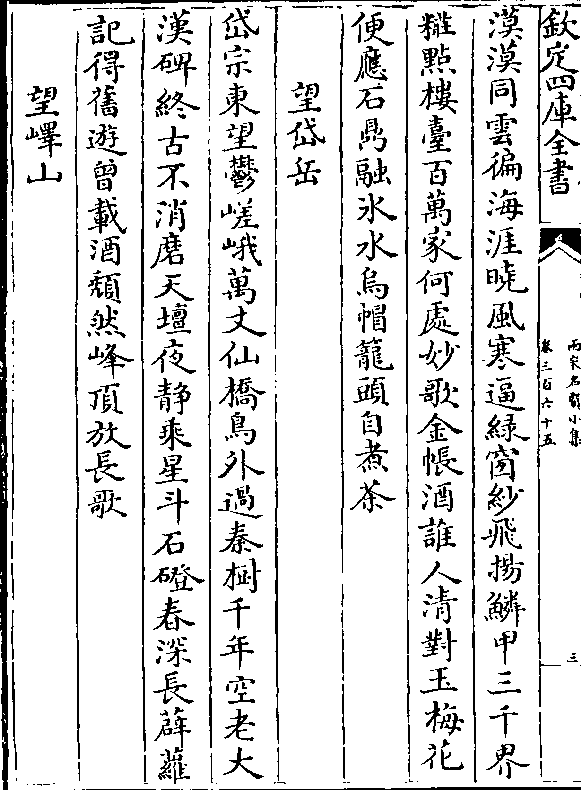 欽定四庫全書
兩宋名賢小集
卷三百六十五
三
漠漠同雲徧海涯曉風寒逼綠窗紗飛揚鱗甲三千界
糚點樓臺百萬家何處妙歌金帳酒誰人清對玉梅花
便應石鼎融氷水烏帽籠頭自煮茶
望岱岳
岱宗東望鬱嵯峨萬丈仙橋鳥外過秦樹千年空老大
漢碑終古不消磨天壇夜静乘星斗石磴春深長薜蘿
記得舊遊曾載酒頹然峰頂放長歌
望嶧山